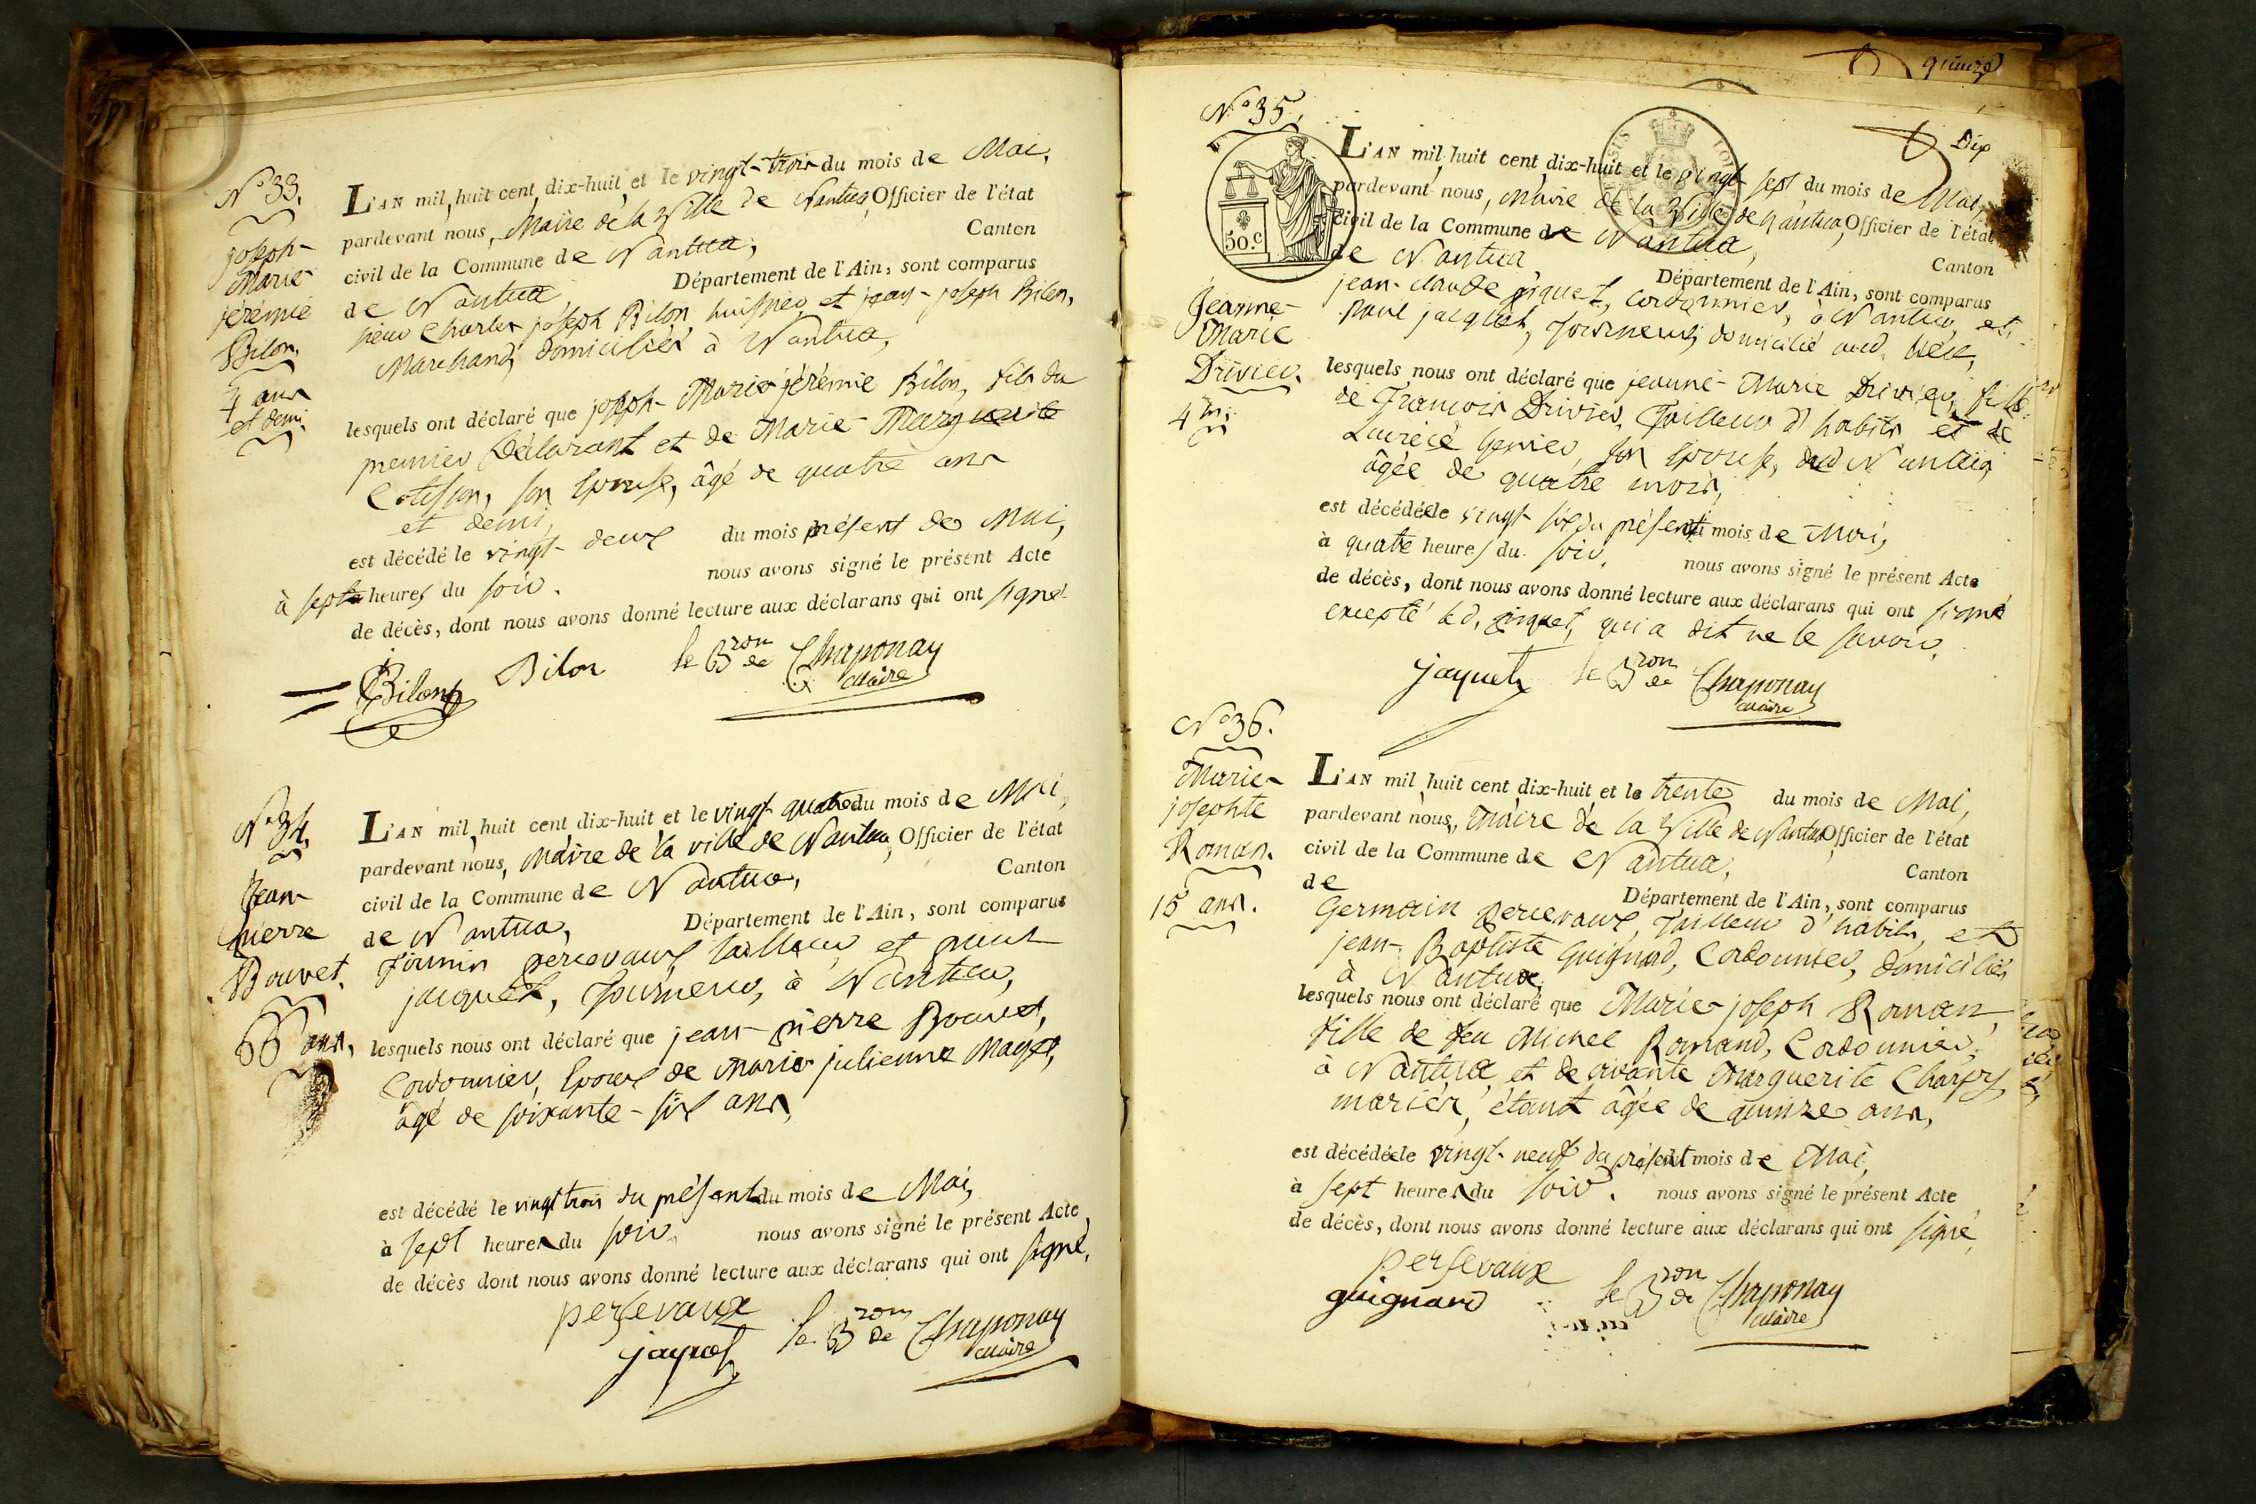 N.° 33.
joseph-
Marie
jérémie
Bilon,
4 ans
et demi.
L'AN mil huit cent dix-huit et le vingt-trois du mois de Mai,
pardevant nous, Maire de la Ville de Nantua, Officier de l'état
civil de la Commune de Nantua, Canton
de Nantua, Département de l'Ain, sont comparus
sieur Charles joseph Bilon huissier, et jean-joseph Bilon,
Marchand, domiciliés à Nantua,
lesquels ont déclaré que joseph-Marie jérémie Bilon, fils du
premier Déclarant et de Marie-Marguerite
son épouse, âgé de quatre ans
et demi,
est décédé le vingt-deux du mois présent de Mai,
à sept heures du soir. nous avons signé le présent Acte
de décès, dont nous avons donné lecture aux déclarans qui ont signé.
Bilon Bilon le Bron de Chaponay
Maire
N.° 34.
Jean-
pierre
Bouvet.
66 ans,
L'AN mil huit cent dix-huit et le vingt quatre du mois de Mai,
pardevant nous, Maire de la ville de Nantua, Officier de l'état
civil de la Commune de Nantua, Canton
de Nantua, Département de l'Ain, sont comparus
Firmin percevaux, tailleur, et paul
jacquet, Tourneur, à Nantua,
lesquels nous ont déclaré que jean-pierre Bouvet,
Cordonnier, époux de Marie julienne
âgé de soixante-six ans,
est décédé le vingt trois du présent du mois de Mai,
à sept heures du soir. nous avons signé le présent Acte
de décès dont nous avons donné lecture aux déclarans qui ont signé.
persevaux
jaquet le Bron de Chaponay
Maire
quinze
Dix
N.° 35.
50.c
Jeanne-
Marie
Drivier.
4 m.
L'AN mil huit cent dix-huit et le vingt sept du mois de Mai,
pardevant nous, Maire de la Ville de Nantua, Officier de l'état
civil de la Commune de Nantua, Canton
de Nantua Département de l'Ain, sont comparus
jean-claude piquet, cordonnier, à Nantua, et
paul jacquet, Tourneur, domicilié aud. lieu,
lesquels nous ont déclaré que jeanne-Marie Drivier, fille
de François Drivier, Tailleur d'habits, et de
son épouse, dud. Nantua,
âgée de quatre mois,
est décédée le vingt six du présent du mois de Mai,
à quatre heures du soir. nous avons signé le présent Acte
de décès, dont nous avons donné lecture aux déclarans qui ont signé
excepté led. piquet, qui a dit ne le savoir.
jaquet le Bron de Chaponay
Maire
N.° 36.
Marie-
josephte
Roman.
15 ans.
L'AN mil huit cent dix-huit et le trente du mois de Mai,
pardevant nous, Maire de la Ville de Nantua, Officier de l'état
civil de la Commune de Nantua, Canton
de Département de l'Ain, sont comparus
Germain percevaux, Tailleur d'habits, et
jean-Baptiste Guignard, Cordonnier, domiciliés
à Nantua,
lesquels nous ont déclaré que Marie-joseph Roman,
fille de feu Michel Romand, Cordonnier,
à Nantua, et de vivante Marguerite Charpy,
mariés, étant âgée de quinze ans,
est décédée le vingt-neuf du présent du mois de Mai,
à sept heures du soir. nous avons signé le présent Acte
de décès, dont nous avons donné lecture aux déclarans qui ont signé,
persevaux
guignard le Bron de Chaponay
Maire